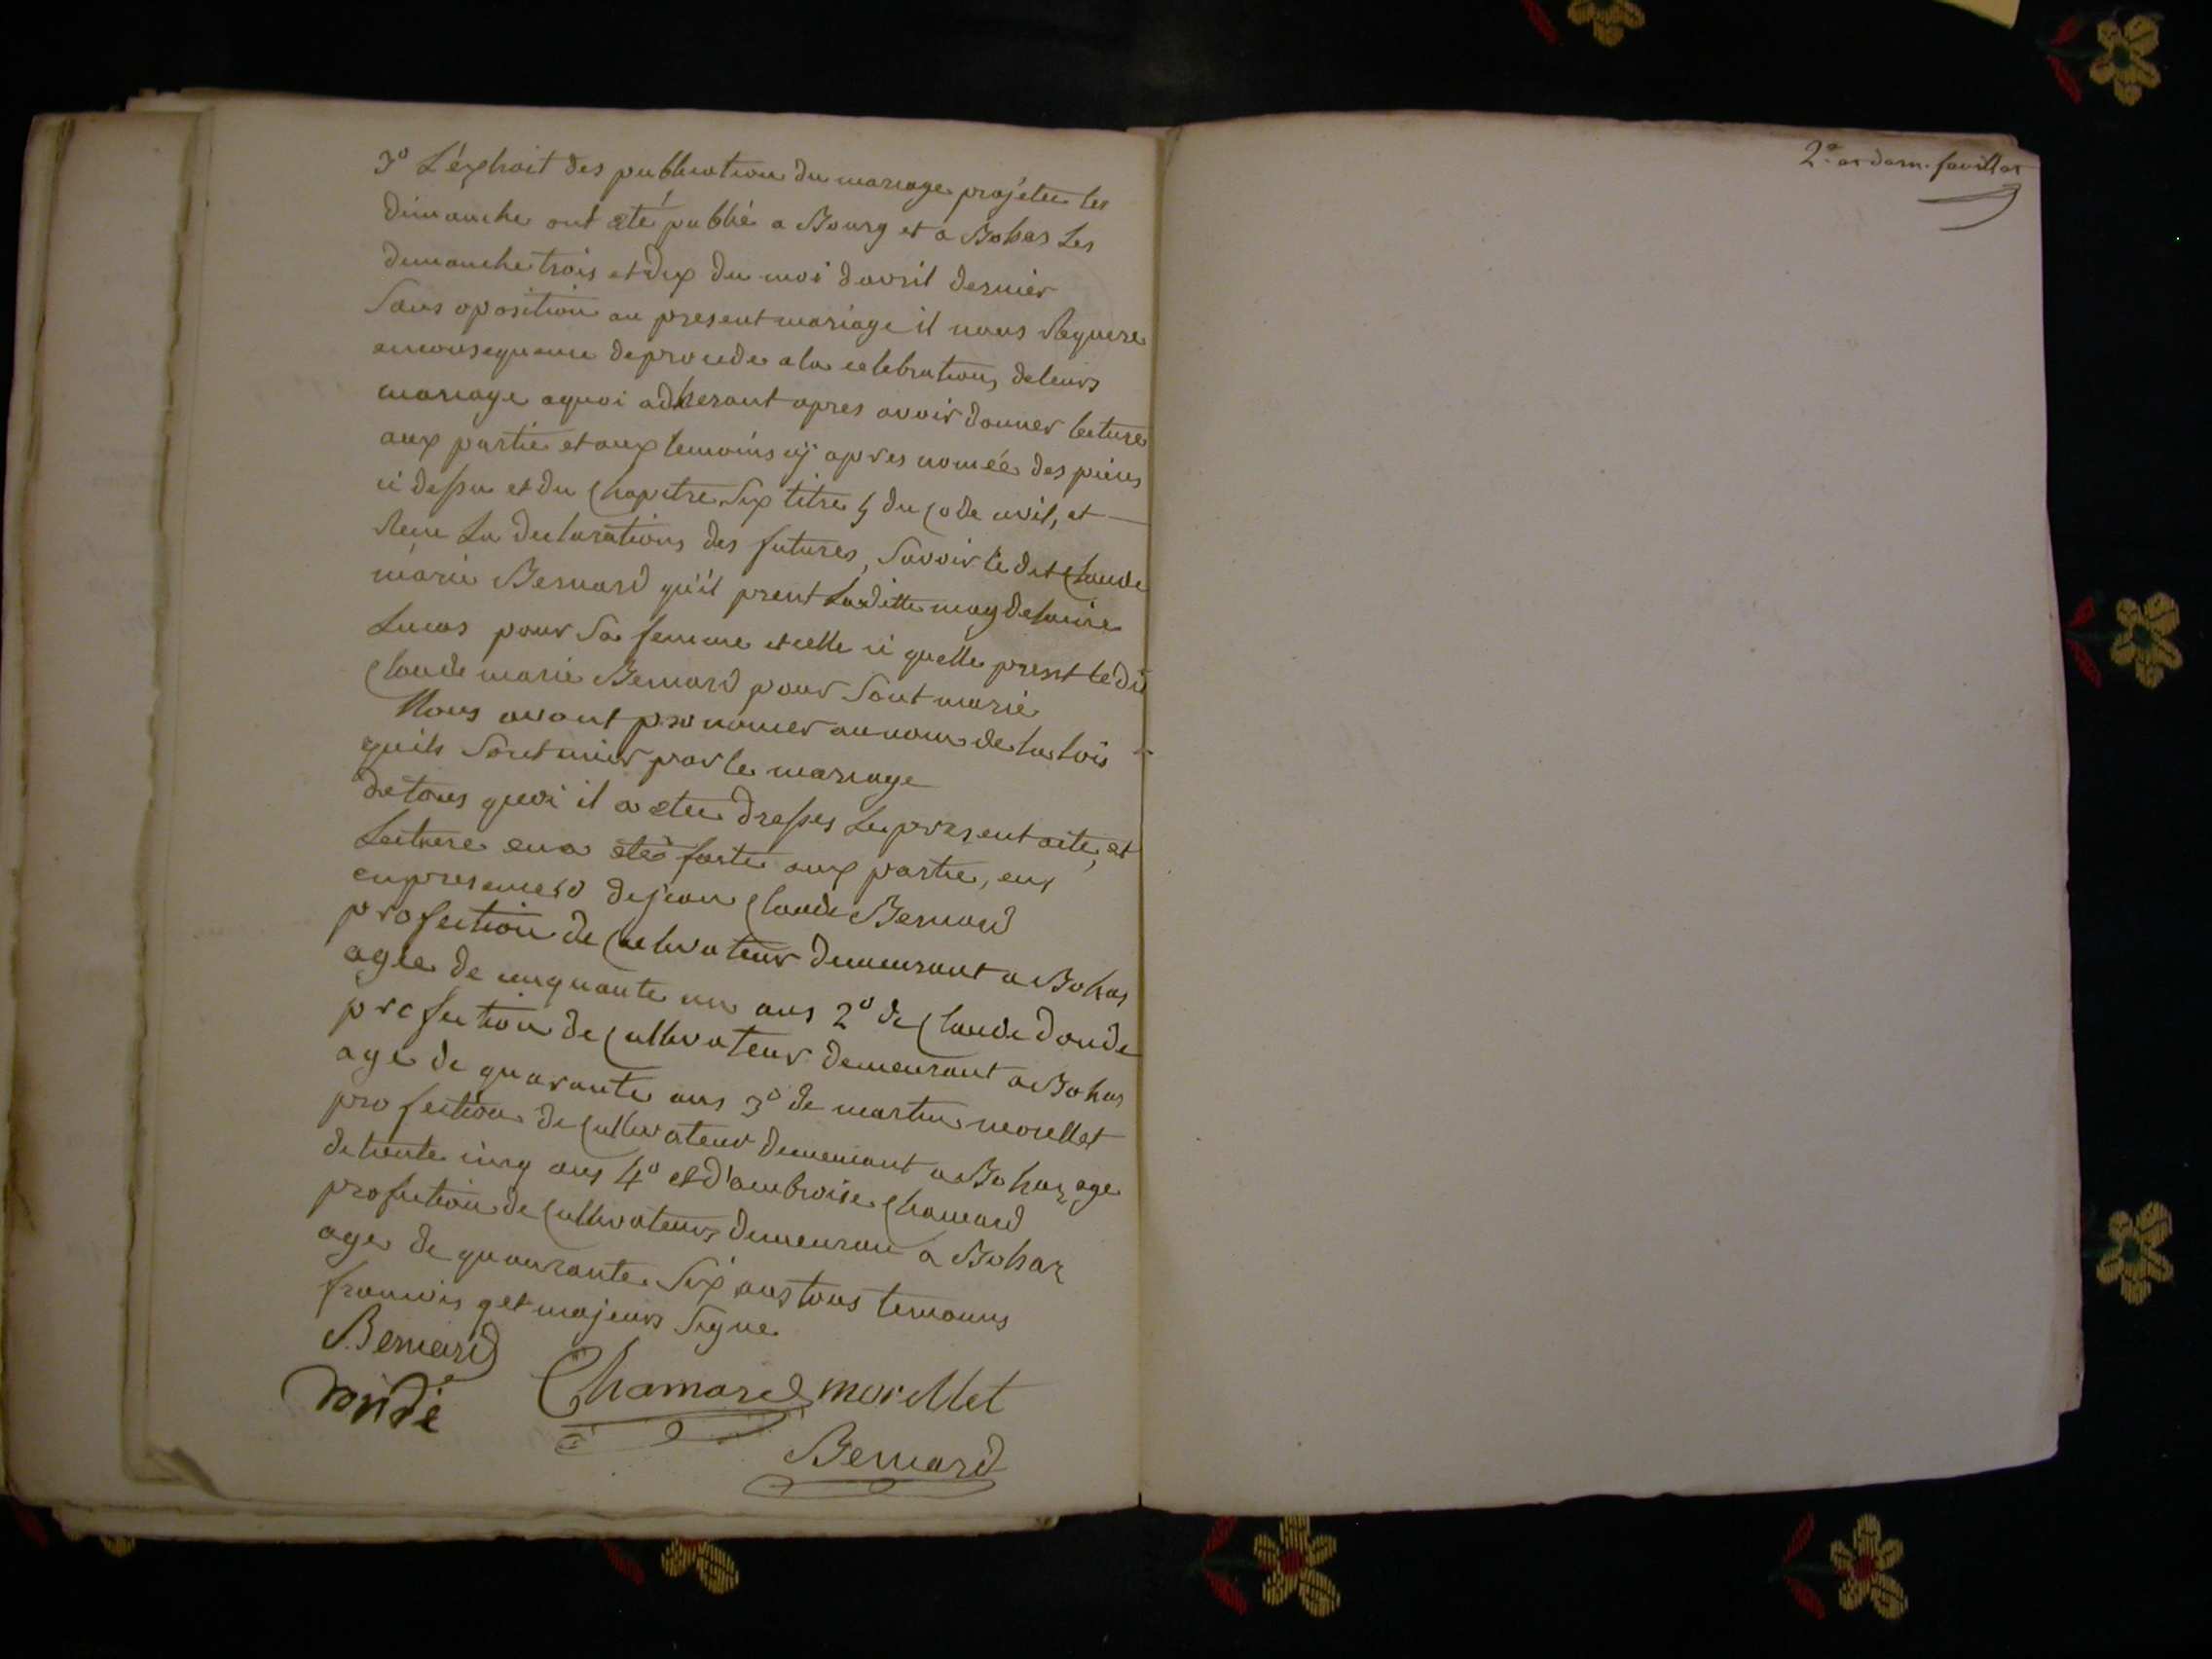 3º L'éxtrait des publication du mariage projetee les
dimanche ont été publié a Bourg et a Bohas Les
dimanche trois et dix du moi davril dernier
Sans oposition au present mariage il nous Requere
enconsequence deprocede ala celebrations deleurs
mariage aquoi adherant apres avoir donner lecture
aux partie et aux temoins cÿ apres nomée des pieces
ci dessu et du Chapitre Six titre 5 du Code civil, et
Recu La declarations des futures, Savoir le dit Claude
marie Bernard qu'il prent Laditte magdelaine
Lucas pour Sa femme et celle ci quelle prent ledi
Claude marie Bernard pour Sont marie
Nous avont prononcer aunom de la lois
quils Sont unies par le mariage
detous quoi il a etee dresses Le present acte, et
Lecture en a été faite aux partie, en
enpresence 1º dejean Claude Bernard
profection de Cultivateur demeurant a Bohas
agee de cinquante un ans 2º de Claude Donde
profection de Cultivateur demeurant a Bohas
age de quarante ans 3º de martin morellet
profection de Cultivateur demeurant a Bohas age
detrente cinq ans 4º et d'ambroise Chamard
profection de Cultivateurs demeurant a Bohas
age de quaurante Six ans tous temouns
francois et majeurs Signe
Bernard
Dondé Chamard morellet
Bernard
2e